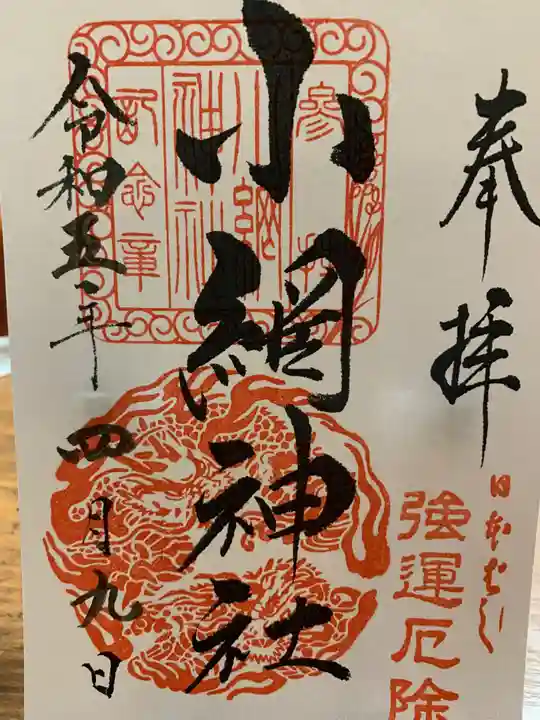 奉拝
日本ばし
強運厄除
小網神社
参拝
小網
神社
記念章
令和五年四月九日